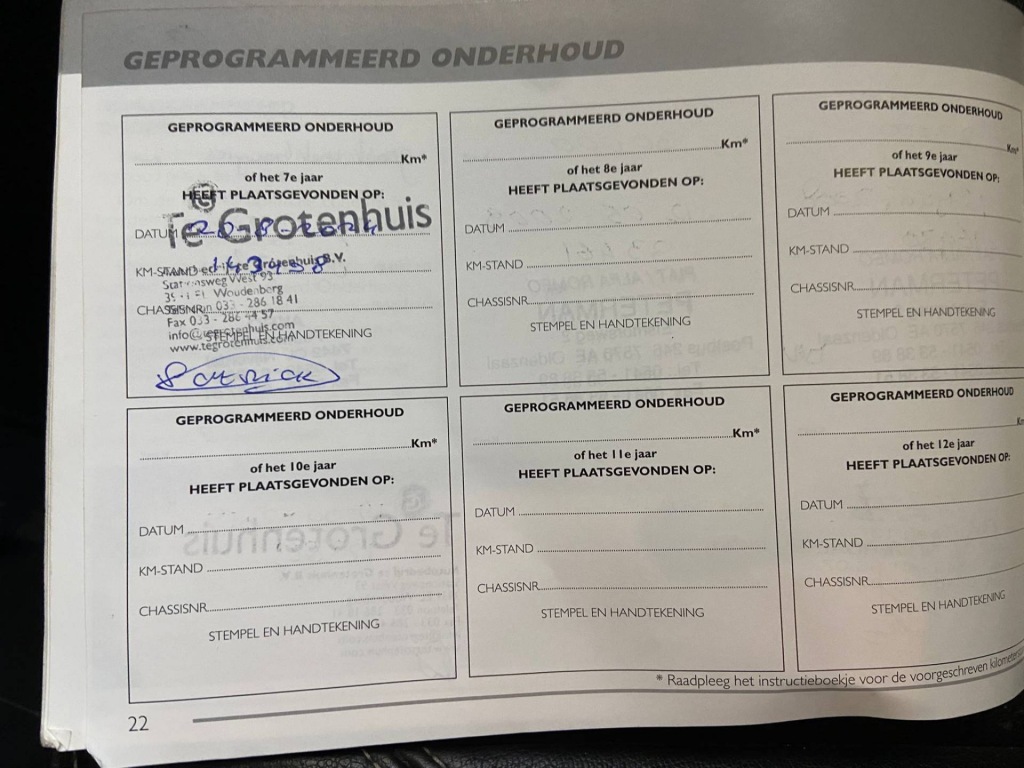 GEPROGRAMMEERD ONDERHOUD
GEPROGRAMMEERD ONDERHOUD
Km*
of het 7e jaar
HEEFT PLAATSGEVONDEN OP:
Te Grotenhuis
DATUM
KM-STAND
te Grotenhuis B.V.
West 93
Woudenberg
CHASSISNR.
033 - 286 18 41
Fax 033 - 286 44 57
info@tegrotenhuis.com
STEMPEL EN HANDTEKENING
www.tegrotenhuis.com
GEPROGRAMMEERD ONDERHOUD
Km*
of het 8e jaar
HEEFT PLAATSGEVONDEN OP:
DATUM
KM-STAND
CHASSISNR.
STEMPEL EN HANDTEKENING
GEPROGRAMMEERD ONDERHOUD
Km*
of het 9e jaar
HEEFT PLAATSGEVONDEN OP:
DATUM
KM-STAND
CHASSISNR.
STEMPEL EN HANDTEKENING
GEPROGRAMMEERD ONDERHOUD
Km*
of het 10e jaar
HEEFT PLAATSGEVONDEN OP:
DATUM
KM-STAND
CHASSISNR.
STEMPEL EN HANDTEKENING
GEPROGRAMMEERD ONDERHOUD
Km*
of het 11e jaar
HEEFT PLAATSGEVONDEN OP:
DATUM
KM-STAND
CHASSISNR.
STEMPEL EN HANDTEKENING
GEPROGRAMMEERD ONDERHOUD
of het 12e jaar
HEEFT PLAATSGEVONDEN OP:
DATUM
KM-STAND
CHASSISNR.
STEMPEL EN HANDTEKENING
* Raadpleeg het instructieboekje voor de voorgeschreven
22